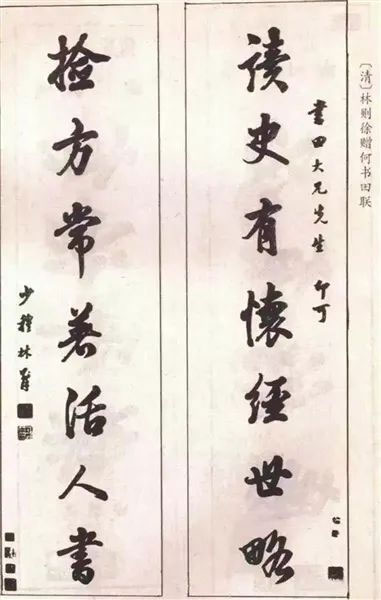 〔清〕林则徐赠何书田联
读史有懷經世略
書田大兄先生 印可
撿方常著活人書
少穆林則徐